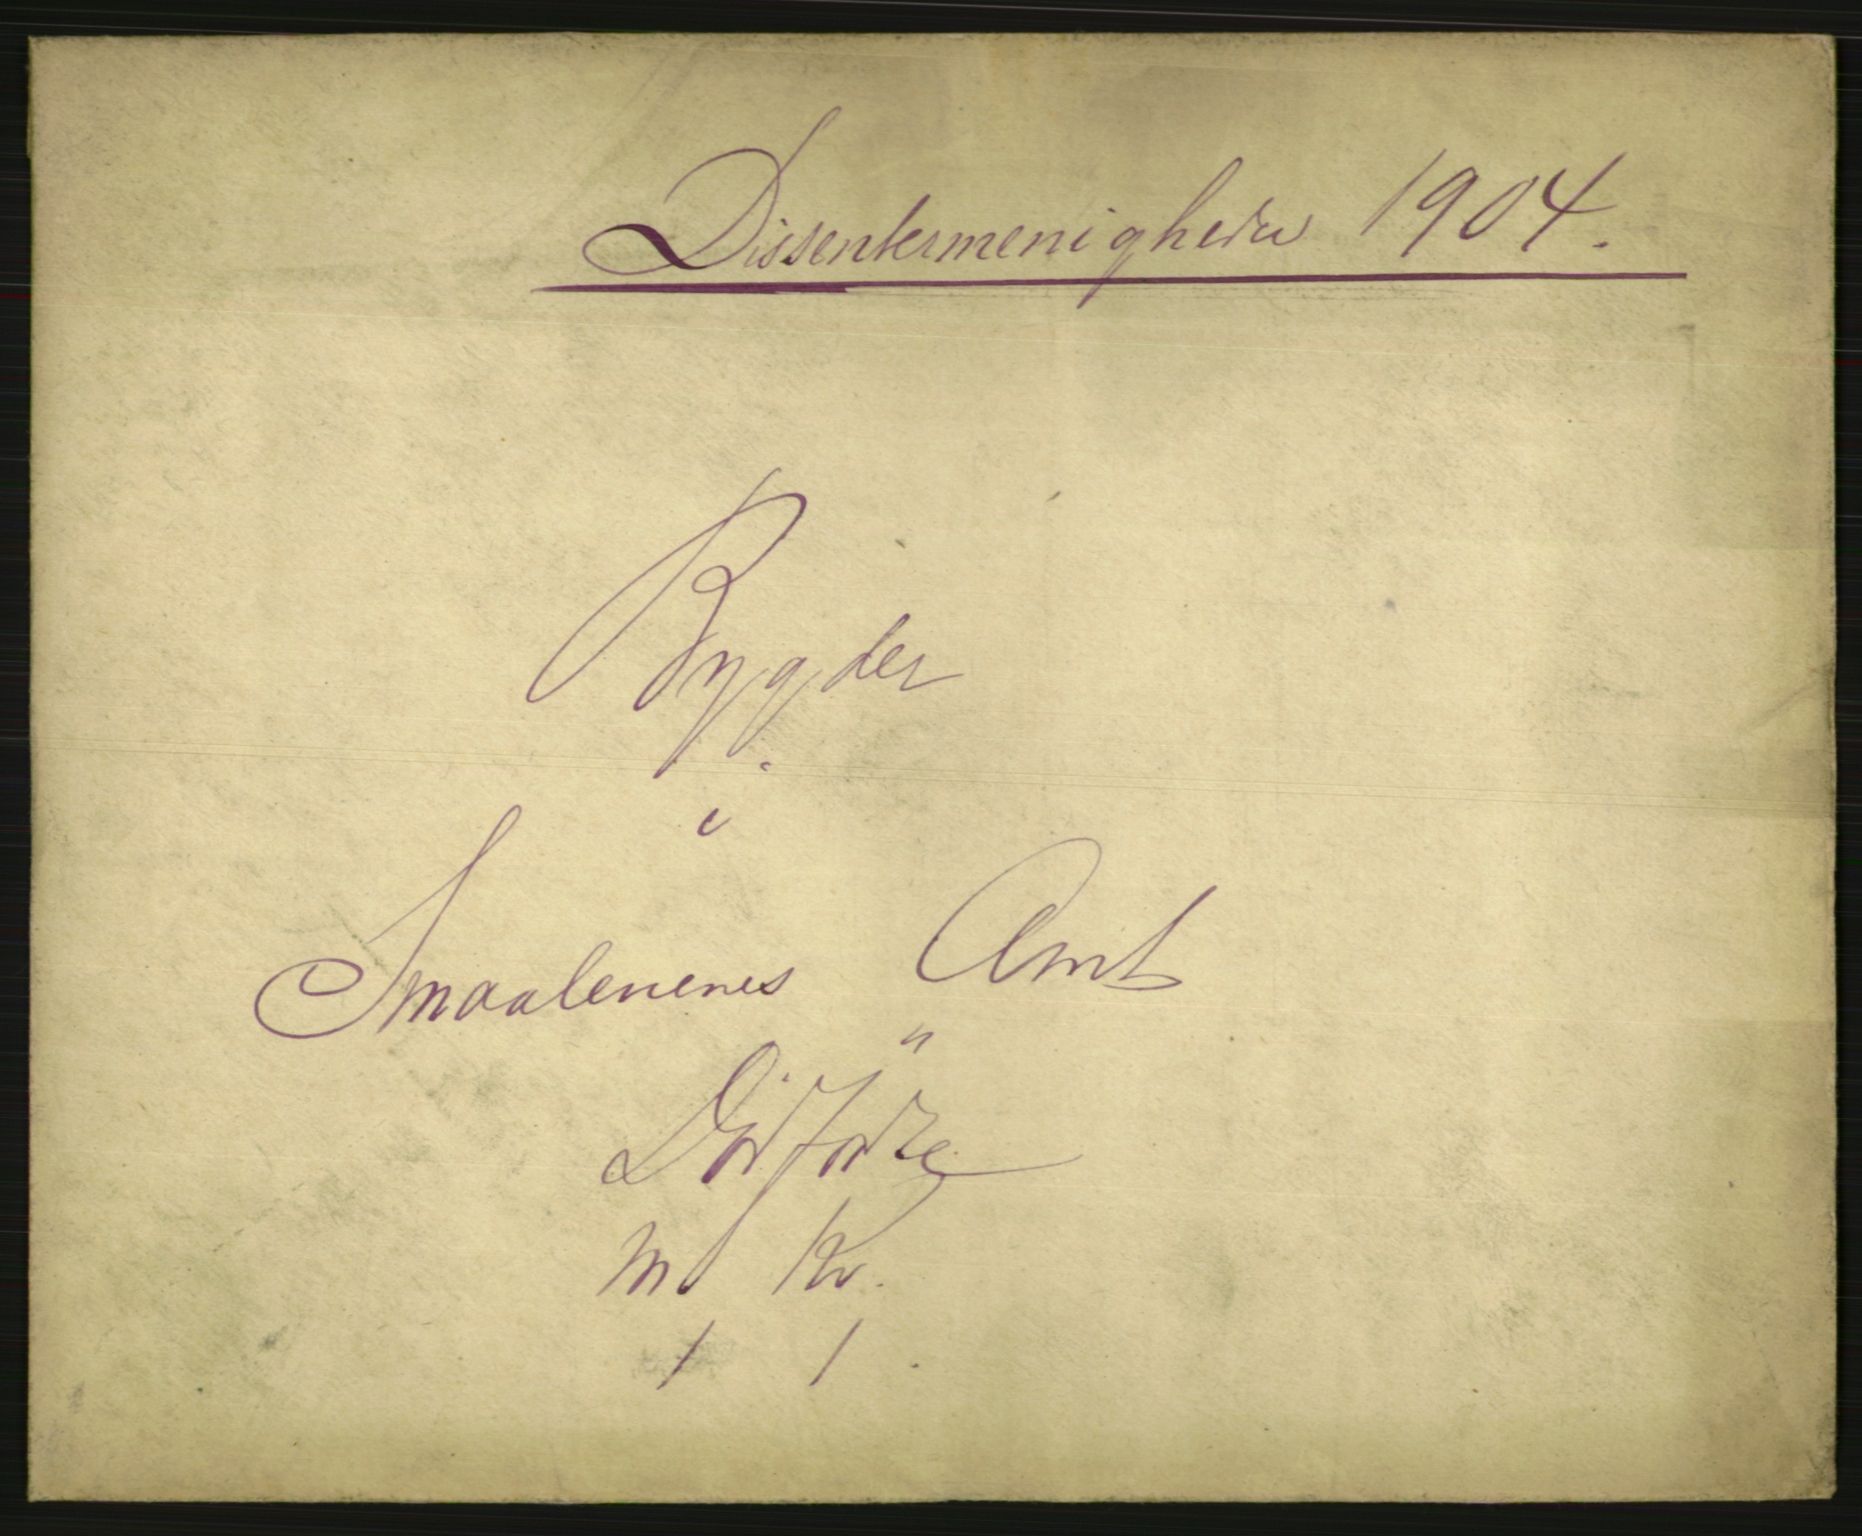 Dissentermenigheder 1904.
Bygder
i
Smaalenenes Amt
"
Dödfödte
M Kv.
1 1.